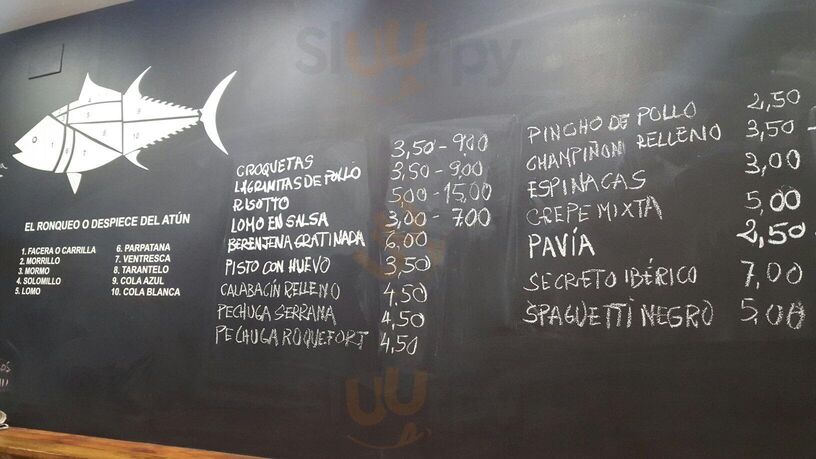 Sluurpy
EL RONQUEO O DESPIECE DEL ATÚN
1. FACERA O CARRILLA
2. MORRILLO
3. MORMO
4. SOLOMILLO
5. LOMO
6. PARPATANA
7. VENTRESCA
8. TARANTELO
9. COLA AZUL
10. COLA BLANCA
CROQUETAS 3,50 - 9,00
LAGRIMITAS DE POLLO 3,50 - 9,00
RISOTTO 5,00 - 15,00
LOMO EN SALSA 3,00 - 7,00
BERENJENA GRATINADA 6,00
PISTO CON HUEVO 3,50
CALABACÍN RELLENO 4,50
PECHUGA SERRANA 4,50
PECHUGA ROQUEFORT 4,50
PINCHO DE POLLO 2,50
CHAMPIÑON RELLENO 3,50 -
ESPINACAS 3,00
CREPE MIXTA 5,00
PAVÍA 2,50 -
SECRETO IBÉRICO 7,00
SPAGUETTI NEGRO 5,00